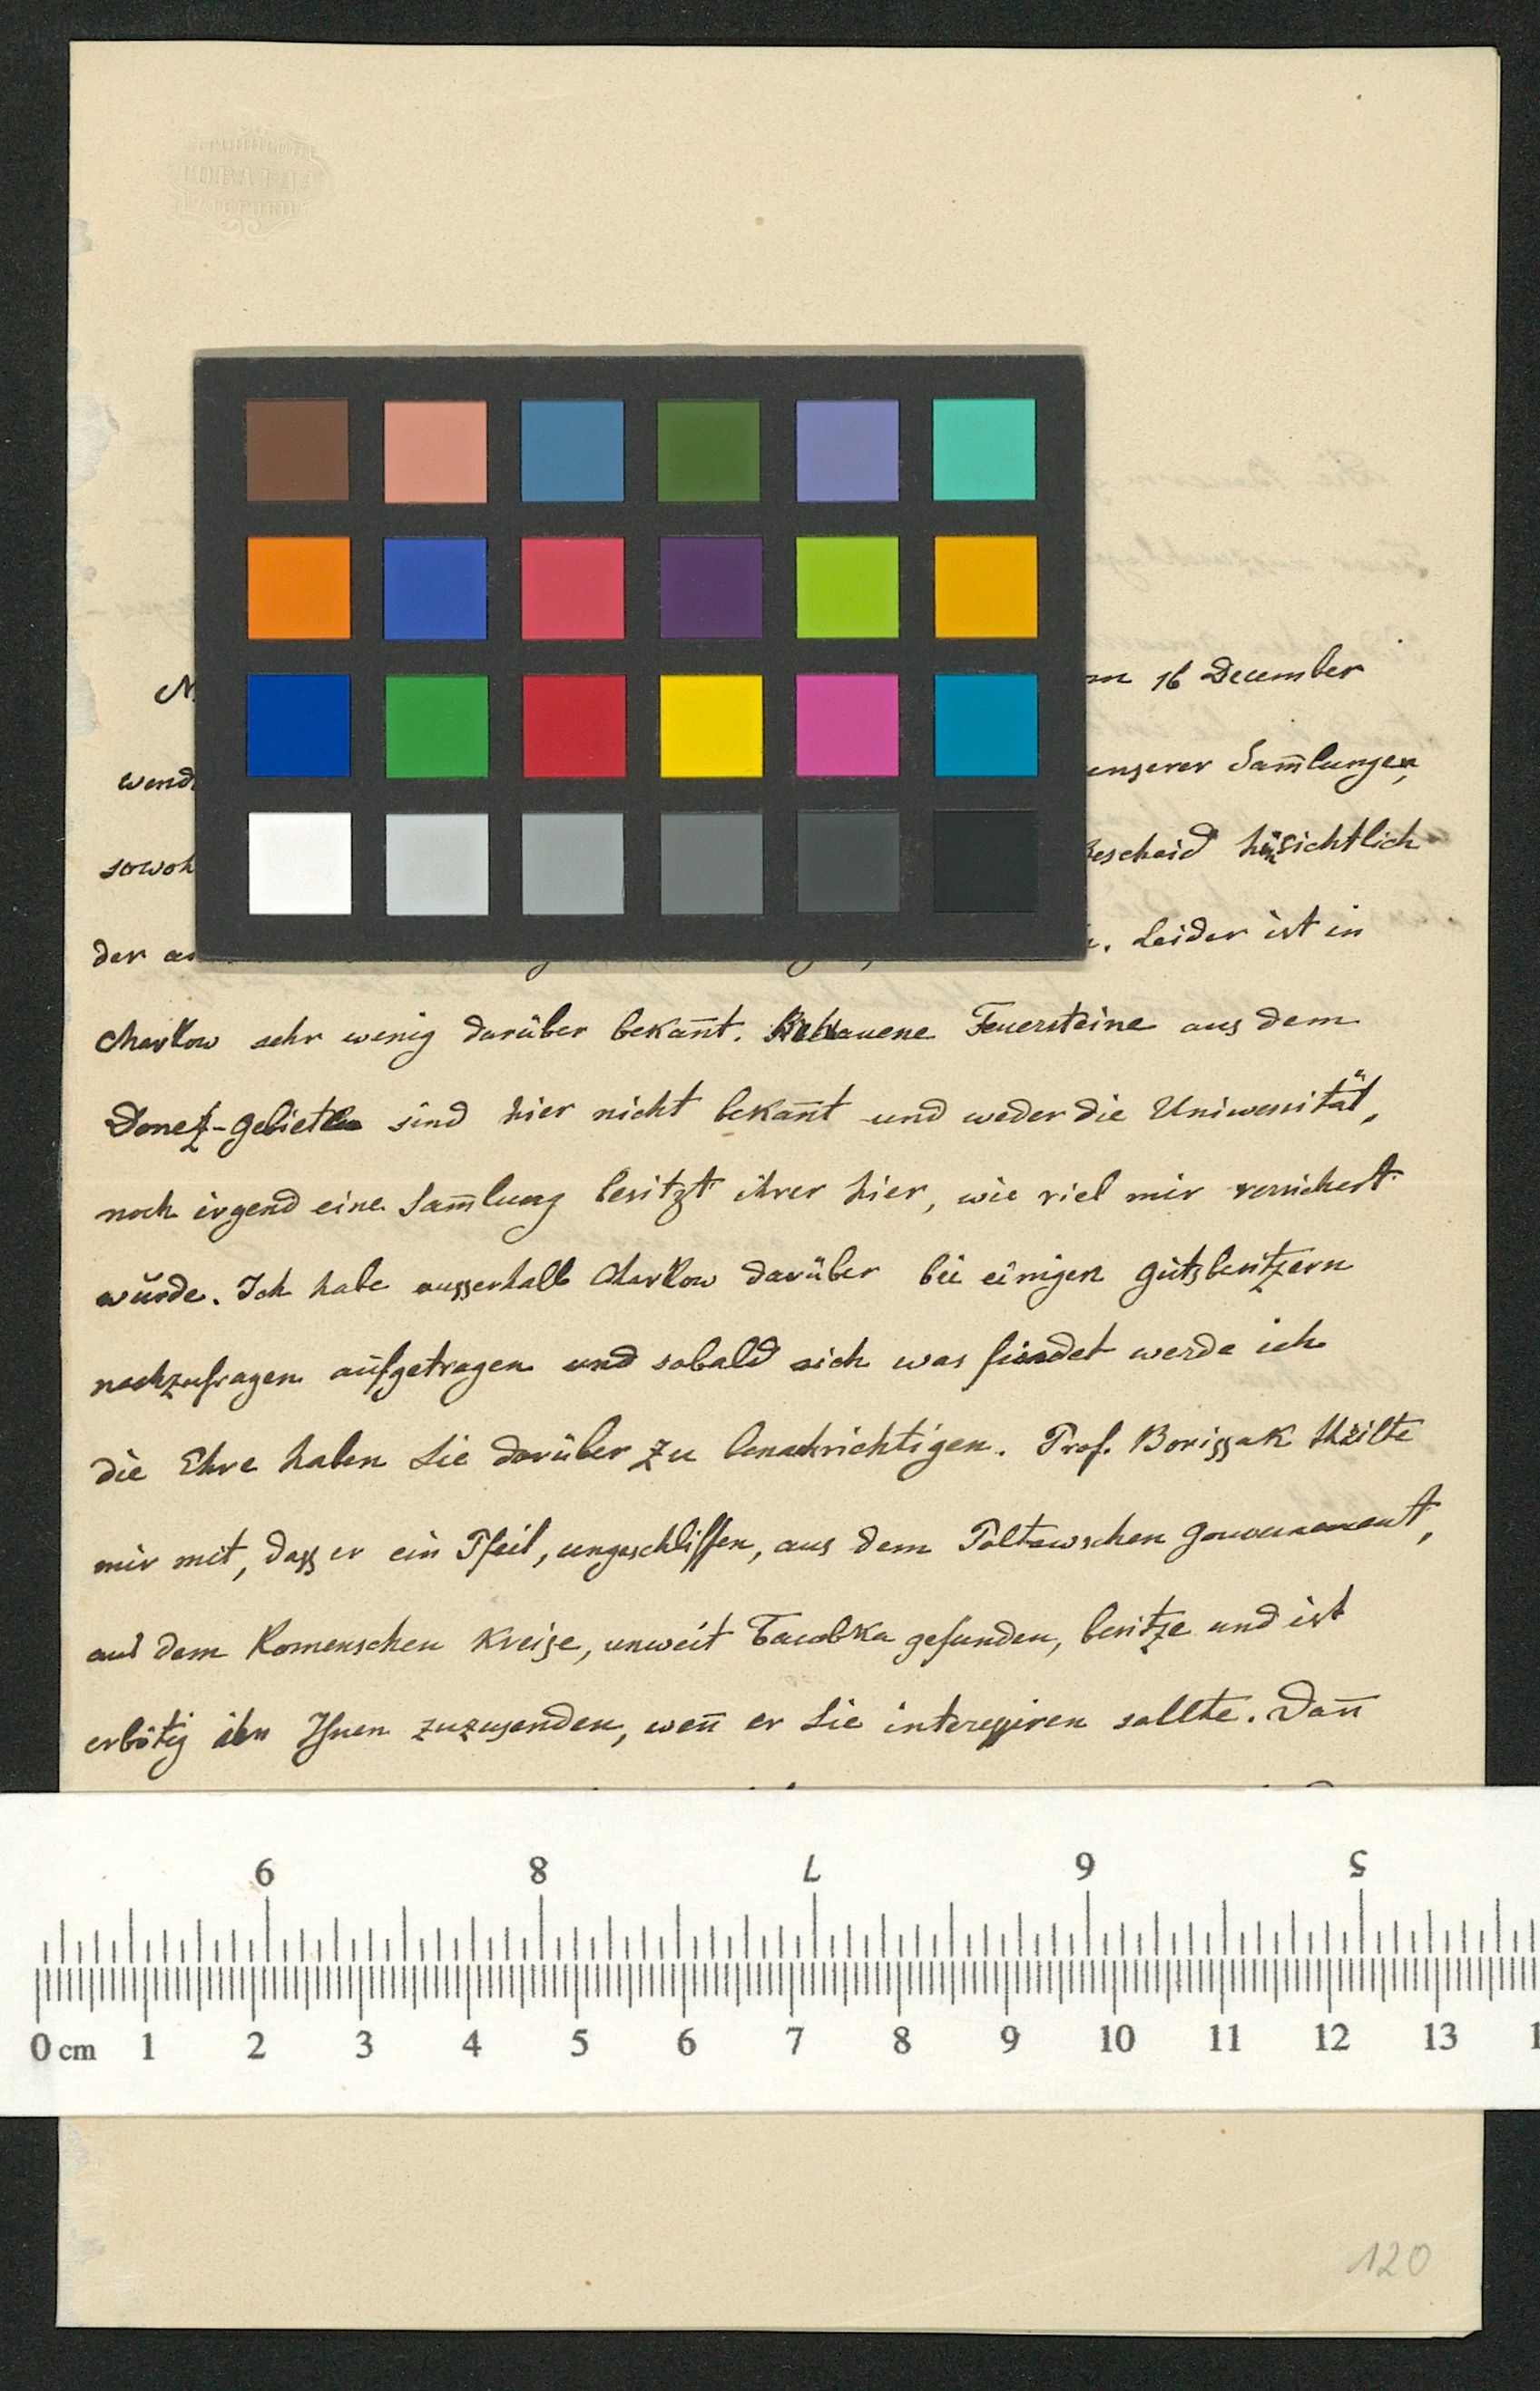 16 December
unserer Sam̄lungen,
Bescheid hinsichtlich
der
Leider ist in
Charkow sehr wenig darüber bekan̄t. Behauene Feuersteine aus dem
Donetz-Gebiete sind hier nicht bekan̄t und weder die Uniwersität,
noch irgend eine Sam̄lung besitzt ihrer hier, wie viel mir versichert
wŭrde. Ich habe ausserhalb Charkow darüber bei einigen Gutsbesitzern
nachzufragen aufgetragen und sobald sich was findet werde ich
die Ehre haben Sie darüber zu benachrichtigen. Prof. Borissak theilte
mir mit, dass er ein Pfeil, ungeschliffen, aus dem Poltawschen Gouvernement,
aus dem Romenschen Kreise, unweit gefunden, besitze und ist
erbötig ihn Ihnen zuzusenden, wen̄ er Sie interessiren sollte. Dan̄
6 8 7 9 5
0 cm 1 2 3 4 5 6 7 8 9 10 11 12 13
120